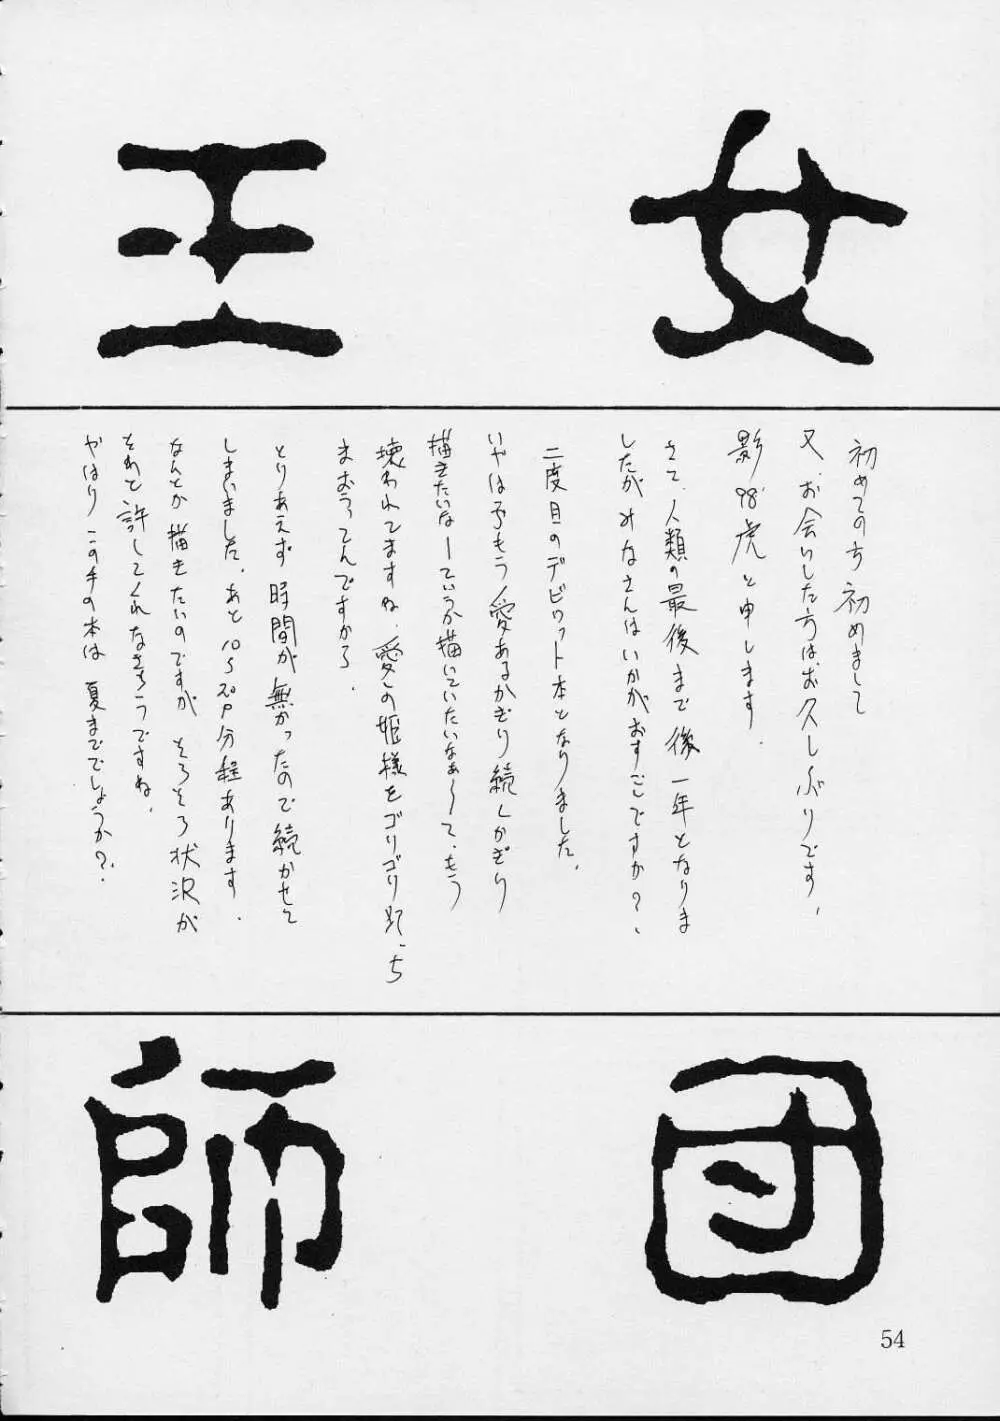 王女
初めての方初めまして
又、お会いした方はお久しぶりです、
影98'虎と申します.
さて、人類の最後まで後一年となりま
したがみなさんはいかがおすごしですか?、
二度目のデビット本となりました、
いやはやもう愛あるかぎり続くかぎり
描きたいなーていうか描いていたいなぁ〜て、もう
壊われてますね、愛の姫様をゴリゴリ
まおうってんですから、
とりあえず時間が無かったので続かせて
しまいました、あと10〜20P分程あります.
なんとか描きたいのですが そろそろ状況が
それと許してくれなさそうですね、
やはりこの手の本は 夏まででしょうか?.
師団
54